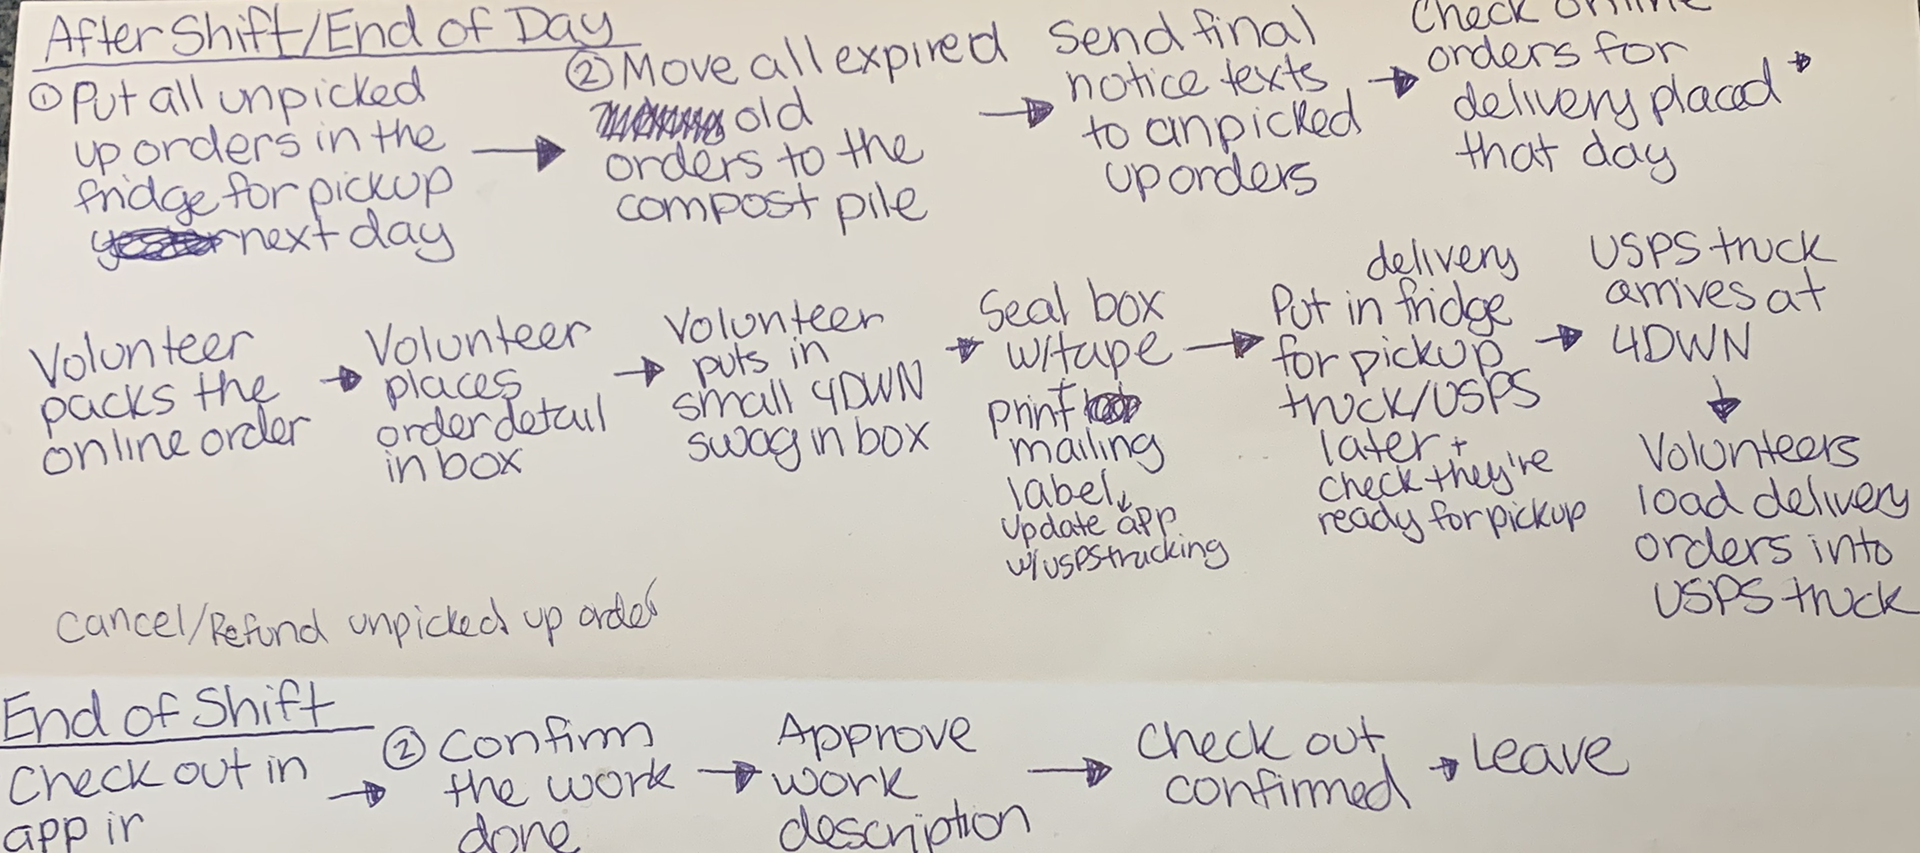 After Shift/End of Day
① Put all unpicked
up orders in the
fridge for pickup
next day
② Move all expired
old
orders to the
compost pile
Send final
notice texts
to unpicked
up orders
Check online
orders for
delivery placed
that day
Volunteer
packs the
online order
Volunteer
places
order detail
in box
Volunteer
puts in
small 4DWN
swag in box
Seal box
w/tape
print
mailing
label
update app
w/USPS tracking
delivery
Put in fridge
for pickup
truck/USPS
later +
check they're
ready for pickup
USPS truck
arrives at
4DWN
Volunteers
load delivery
orders into
USPS truck
Cancel/Refund unpicked up order
End of Shift
Check out in
app in
② Confirm
the work
done
Approve
work
description
Check out
confirmed
Leave